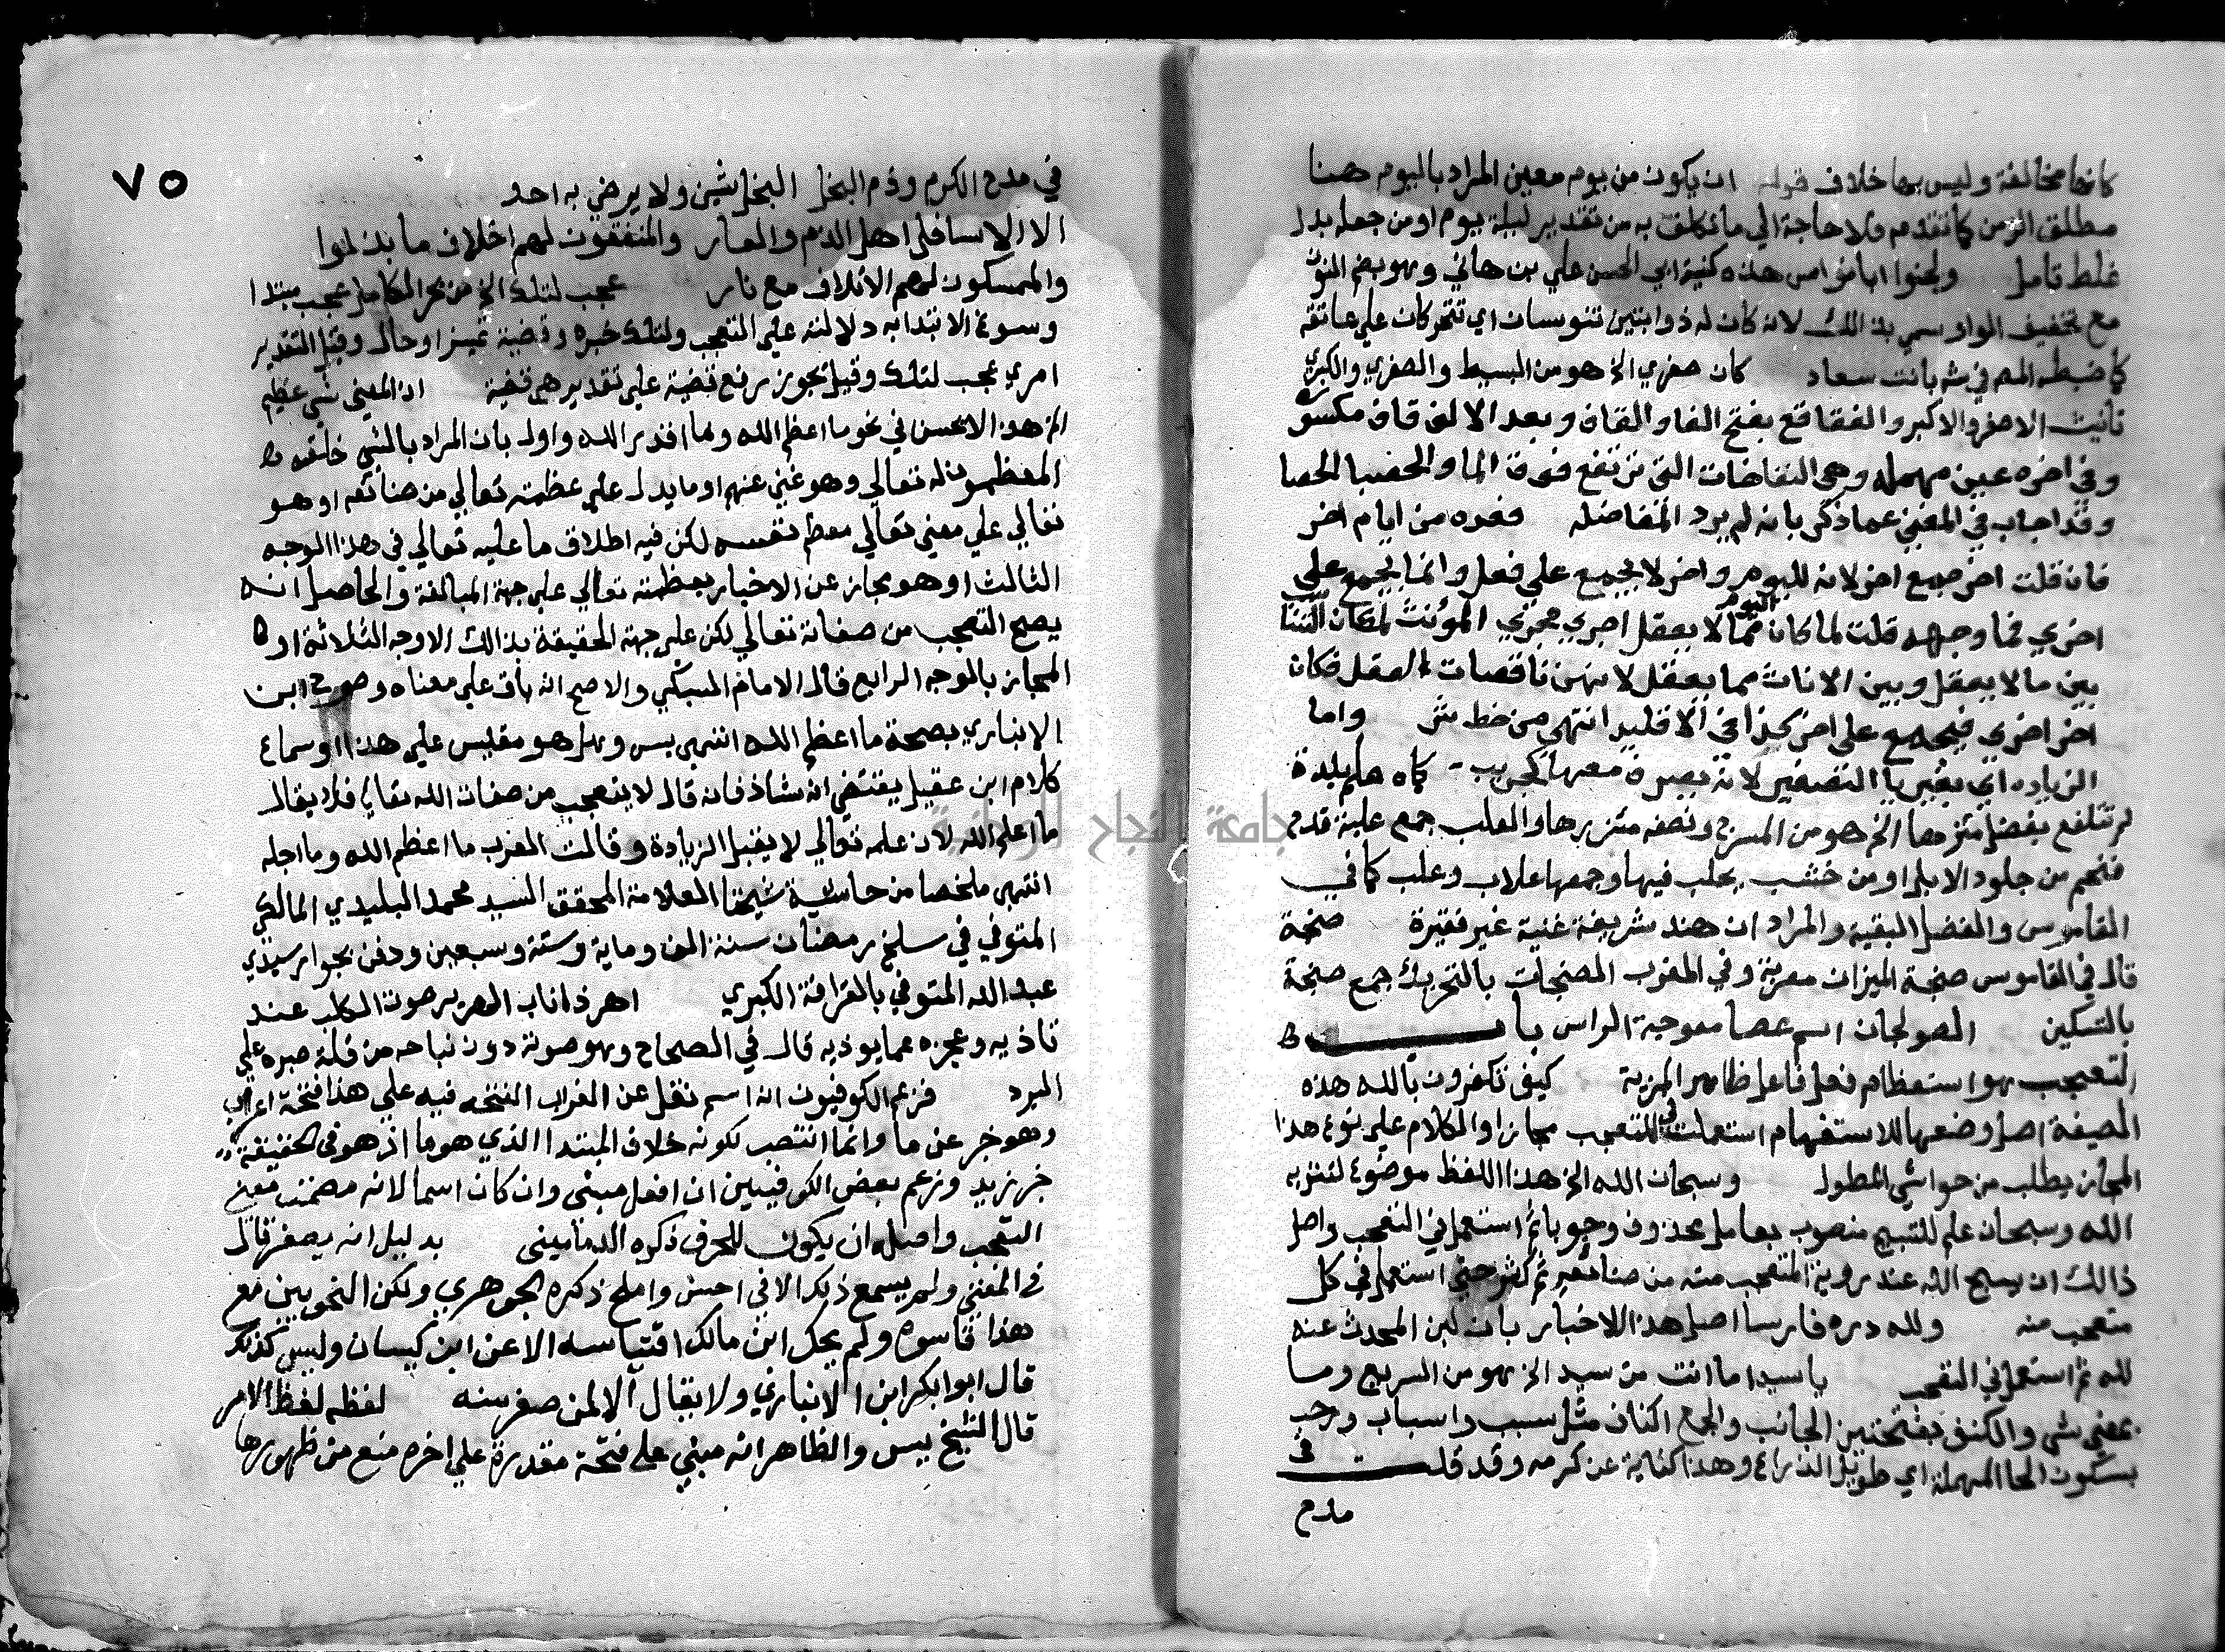 كانها مخالفة وليس بها خلاف قوله ان يكون من يوم معين المراد باليوم هنا
مطلق الزمن كما تقدم ولا حاجة الي ما تكلف به من تقدير ليلة يوم او من جعله بدل
غلط تامل ولجنوا ابا نواس هذه كنية ابي الحسن علي بن هاني وهو بضم النون
مع تخفيف الواو سمي بذالك لانه كان له ذوابتين تنوسان اي تتحركان علي عاتقه
كما ضبطه المص في ش بانت سعاد كان صغري الخ هو من البسيط والصغري والكبري
تانيث الاصغر والاكبر والفقاقع بفتح الفا والقاف وبعد الالف قاف مكسورة
وفي اخره عين مهمله وهي النفاخات التي ترتفع فوق الما والحصبا الحصا
وقد اجاب في المغني عما ذكر بانه لم يرد المفاضله فعده من ايام اخر
فان قلت اخر جمع اخر لانه لليوم واخر لا يجمع علي فعل وانما يجمع علي
اخري فما وجهه قلت لما كان اليوم مما لا يعقل اجري مجري المؤنث لمكان التنا
بين ما لا يعقل وبين الاناث مما يعقل لانهن ناقصات العقل فكان
اخر اخري فيجمع علي اخر كذا في الاقليد انتهي من خط ش واما
الزياده اي بغير يا التصغير لانه بصيرة معها كجريب كماه علم بلدة
لم تتلفع بفضل مئزرها الخ هو من المسرح ونصفه مئزرها والعلب جمع علبة قدم
فنخم من جلود الابل او من خشب يحلب فيها وجمعها علاب وعلب كما في
القاموس والفضل البقية والمراد ان هند شريفة غنية غير فقيرة صنجة
قال في القاموس صنجة الميزان معربة وفي المغرب الصنجات بالتحريك جمع صنجة
بالتسكين الصولجان اسم عصا معوجة الراس باب
التعجب هو استعظام فعل فاعل ظاهر المزية كيف تكفرون بالله هذه
الصيغة اصل وضعها للاستفهام استعملت في التعجب مجازا والكلام علي نوع هذا
المجاز يطلب من حواشي المطول وسبحان الله الخ هذا اللفظ موضوع لتنزيه
الله وسبحان علم للتسبيح منصوب بعامل محذوف وجوبا ثم استعمل في التعجب واصل
ذالك ان يسبح الله عند روية المتعجب منه من صنائعه ثم كثر حتي استعمل في كل
متعجب منه ولله دره فارسا اصل هذا الاخبار بان لبن المحدث عنه
لله ثم استعمل في التعجب يا سيدا ما انت من سيد الخ هو من السريع وما
بمعني شي والكنف بفتحتين الجانب والجمع اكناف مثل سبب واسباب ورحب
بسكون الحا المهملة اي طويل الذراع وهذا كناية عن كرمه وقد قلت في
مدح
٧٥
في مدح الكرم وذم البخل البخل شين ولا يرضي به احد
الا الاسافل اهل الذم والعار والمنفقون لهم اخلاف ما بذلوا
والممسكون لهم الاتلاف مع نار عجب لتلك الخ من بحر الكامل عجب مبتدا
وسوغ الابتدا به دلالته علي التعجب ولتلك خبره وقضية تميز او حال وقيل التقدير
امري عجب لتلك وقيل يجوز رفع قضية علي تقدير هي قضية اذ المعني شي عظيم
الخ هذا لا يحسن في نحو ما اعظم الله وما اقدر الله واول بان المراد بالشي خلقه
المعظمون له تعالي وهو غني عنهم او ما يدل علي عظمته تعالي من صنائعه او هو
تعالي علي معني تعالي معظم نفسه لكن فيه اطلاق ما عليه تعالي في هذا الوجه
الثالث او هو مجاز عن الاخبار بعظمته تعالي علي جهة المبالغة والحاصل انه
يصح التعجب من صفاته تعالي لكن علي جهة الحقيقة بذالك الاوجه الثلاثة او
المجاز بالوجه الرابع قال الامام السبكي والاصح انه باق علي معناه وصرح ابن
الانباري بصحة ما اعظم الله انتهي يس وهل هو مقيس علي هذا او سماع
كلام ابن عقيل يقتضي انه شاذ فانه قال لا يتعجب من صفات الله تعالي فلا يقال
ما اعلم الله لان علمه تعالي لا يقبل الزيادة وقالت العرب ما اعظم الله وما اجله
انتهي ملخصا من حاشية شيخنا العلامة المحقق السيد محمد البليدي المالكي
المتوفي في سلخ رمضان سنة الف وماية وستة وسبعين ودفن بجوار سيدي
عبد الله المتوفي بالقرافة الكبري اهر ذا ناب الهرير صوت الكلب عند
تاذيه وعجزه مما يوذيه قال في الصحاح وهو صوته دون نباحه من قلة صبره علي
البرد فزعم الكوفيون انه اسم نقل عن الفراء الفتحه فيه علي هذا فتحة اعراب
وهو خبر عن ما وانما انتصب لكونه خلاف المبتدا الذي هو ما اذ هو في الحقيقة
خبر زيد وزعم بعض الكوفيين ان افعل مبني وان كان اسما لانه مضمن معني
التعجب واصله ان يكون للحرف ذكره الدماميني بدليل انه يصغر قال
في المغني ولم يسمع ذلك الا في احسن واملح ذكره الجوهري ولكن النحويين مع
هذا قاسوه ولم يحك ابن مالك اقتياسه الا عن ابن كيسان وليس كذلك
قال ابوا بكر ابن الانباري ولا يقال الا لمن صغر سنه لفظه لفظ الامر
قال الشيخ يس والظاهر انه مبني علي فتحة مقدرة علي اخره منع من ظهورها